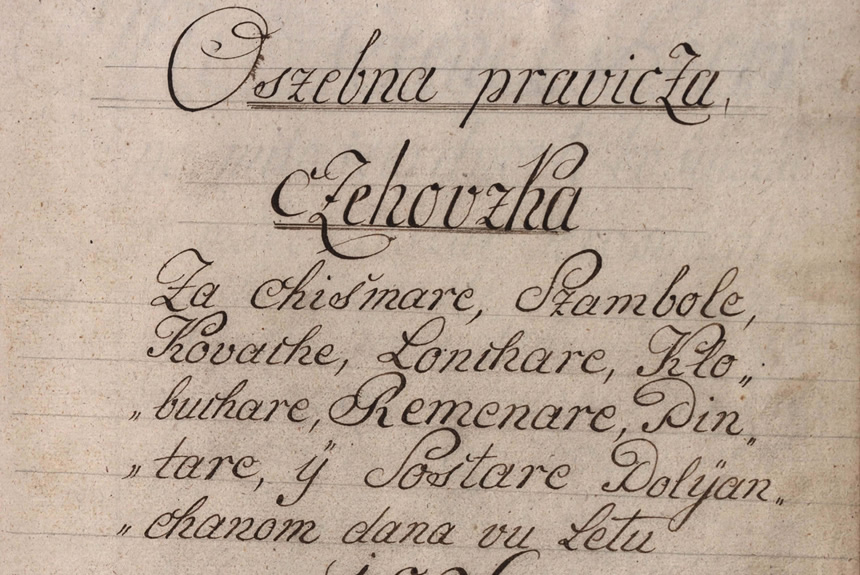 Oszebna pravicza,
czehovzka
Za chismare, Szambole,
Kovache, Lonchare, Klo„
„buchare, Remenare, Din„
„tare, ÿ Sostare Dolÿan„
„chanom dana vu Letu